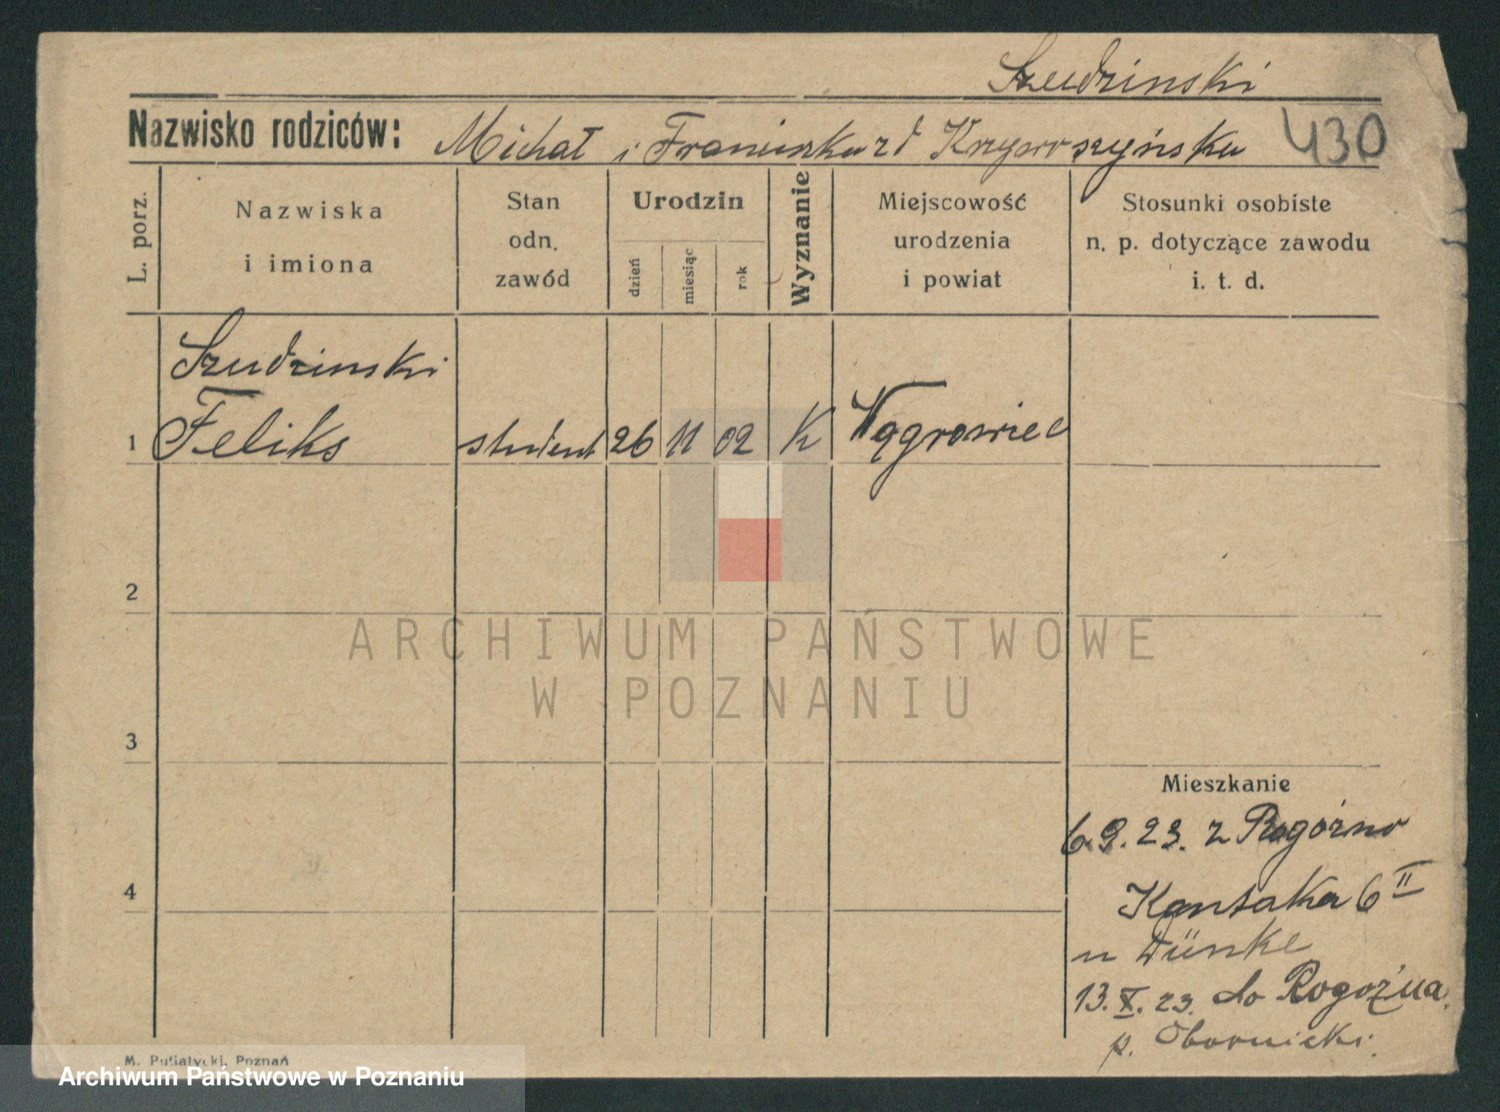 Szudzinski
Nazwisko rodziców: Michał i Franciszka zd Krzywoszyńska 430
L. porz.
Nazwiska
i imiona
Stan
odn.
zawód
Urodzin
dzień
miesiąc
rok
Wyznanie
Miejscowość
urodzenia
i powiat
Stosunki osobiste
n. p. dotyczące zawodu
i. t. d.
Szudzinski
1 Feliks student 26 11 02 K Wągrowiec
2
ARCHIWUM PAŃSTWOWE
W POZNANIU
3
Mieszkanie
6.9.23. z Rogóżno
4
Kantaka 6 II
u Dünke
13.X.23. do Rogoźna.
p. Obornicki.
M. Putiatycki, Poznań
Archiwum Państwowe w Poznaniu